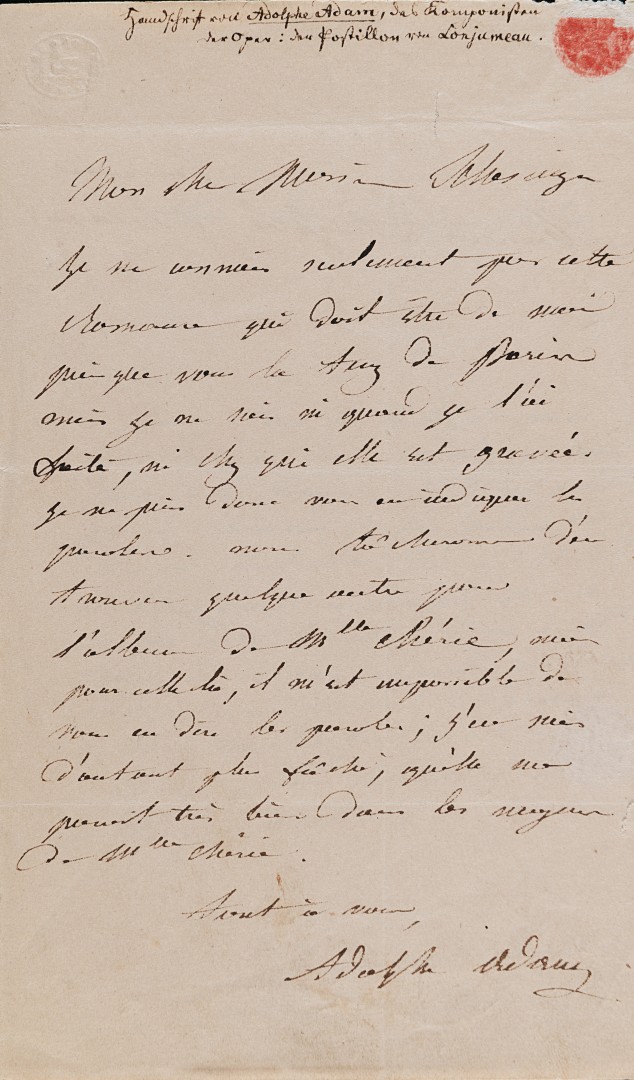 Handschrift von Adolphe Adam, des Komponisten
der Oper: der Postillon von Lonjumeau.
Mon cher Schlesinger
Je ne connais seulement pas cette
Romance qui doit être de moi
puisque vous la de Paris
mais je ne sais ni quand je l'ai
faite, ni chez qui elle est gravée.
Je ne puis donc vous en indiquer les
paroles. nous tâcherons d'en
trouver quelque autre pour
l'album de Mlle Chérie, mais
pour celle là, il m'est impossible de
vous en dire les paroles; j'en suis
d'autant plus fâché, qu'elle me
parait très bien dans les moyens
de Mlle Chérie.
Tout à vous,
Adolphe Adam